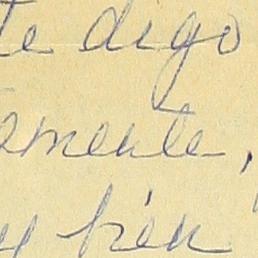 te digo
emente,
y bien